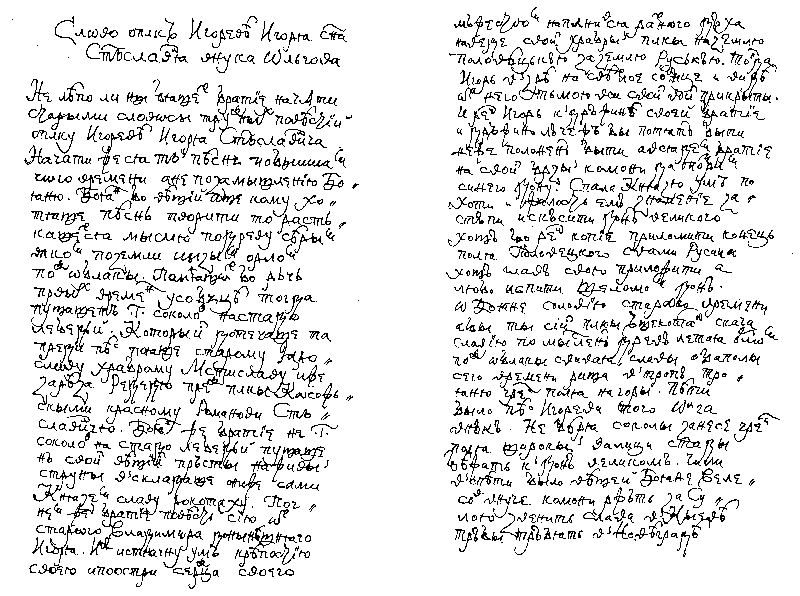 Слово оплкъ Игоревѣ Игорѧ сн҃а
Ст҃ъславлѧ внука Ѡльгова
Не лѣпо ли ны бяше братіе начати
старыми словесы трудныⷯ повѣстіи
оплку Игоревѣ Игорѧ Ст҃ъславича
Начати же сѧ тъ пѣснѣ по былинаⷨ
сего времени а не по замышленію Бо
яню. Боянъ бо вѣщіи аще кому хо
тяше пѣснь творити то растѣ
кашетсѧ мыслію по древу сѣрыⷨ
вълкоⷨ по земли шизыⷨ орлоⷨ
поⷣ облакы. Помняшеⷮ бо рѣчь
първыⷯ временъ усобіцѣ тогда
пущашеть Г҃. соколовь на стадо
лебедѣи. Который дотечаше та
преди пѣⷭ пояше старому Яро
славу храброму Мстиславу иже
зарѣза Редедю преⷣ плъкы Касожь
скыми красному Романови Стъ
славличю. Боянъ же братіе не Г҃.
соколовь на стадо лебедѣй пущаше
нъ своя вѣщіа пръсты на живыя
струны въскладаше они же сами
Княземъ славу рокотаху. Поч
неⷨ же братіе повѣсть сію ѿ
стараго Владимира до нынѣшнѧго
Игорѧ. Иже истягну умь крѣпостію
своею и поостри сердца своего
мужествоⷨ наполнивсѧ ратнаго духа
наведе своя храбрыя плъкы на землю
Половѣцькую за землю Руськую. Тогда
Игорь възрѣ на свѣтлое солнце и видѣ
ѿ него тьмою всѧ своя воя прикрыты.
И рече Игорь къ дружинѣ своеи братіе
и дружино луцежъ бы потяту быти
неже полонену быти а всядемъ братіе
на свои бръзыя комони да позримъ
синего Дону. Спала Князю умь по
хоти и жалость ему знаменіе за
ступи искусити Дону великого
хощу бо рече копіе приломити конець
поля Половецкого съ вами Русици
хощу главу свою приложити а
любо испити шеломомь Дону.
Ѡ Бояне соловію стараго времени
абы ты сіа плъкы ущекоталъ скача
славію по мыслену древу летаѧ умомъ
поⷣ облакы свиваѧ славы оба полы
сего времени рища въ тропу Тро
яню чреⷭ полѧ на горы. Пѣти
было пѣⷭ Игореви того Олга
внуку. Не бурѧ соколы занесе чреⷭ
полѧ широкаѧ галици стады
бѣжать къ Дону великому. Чили
въспѣти было вѣщей Бояне Веле
совь внуче комони ржуть за Су
лою звенить слава въ Кыевѣ
трубы трубять въ Новѣградѣ